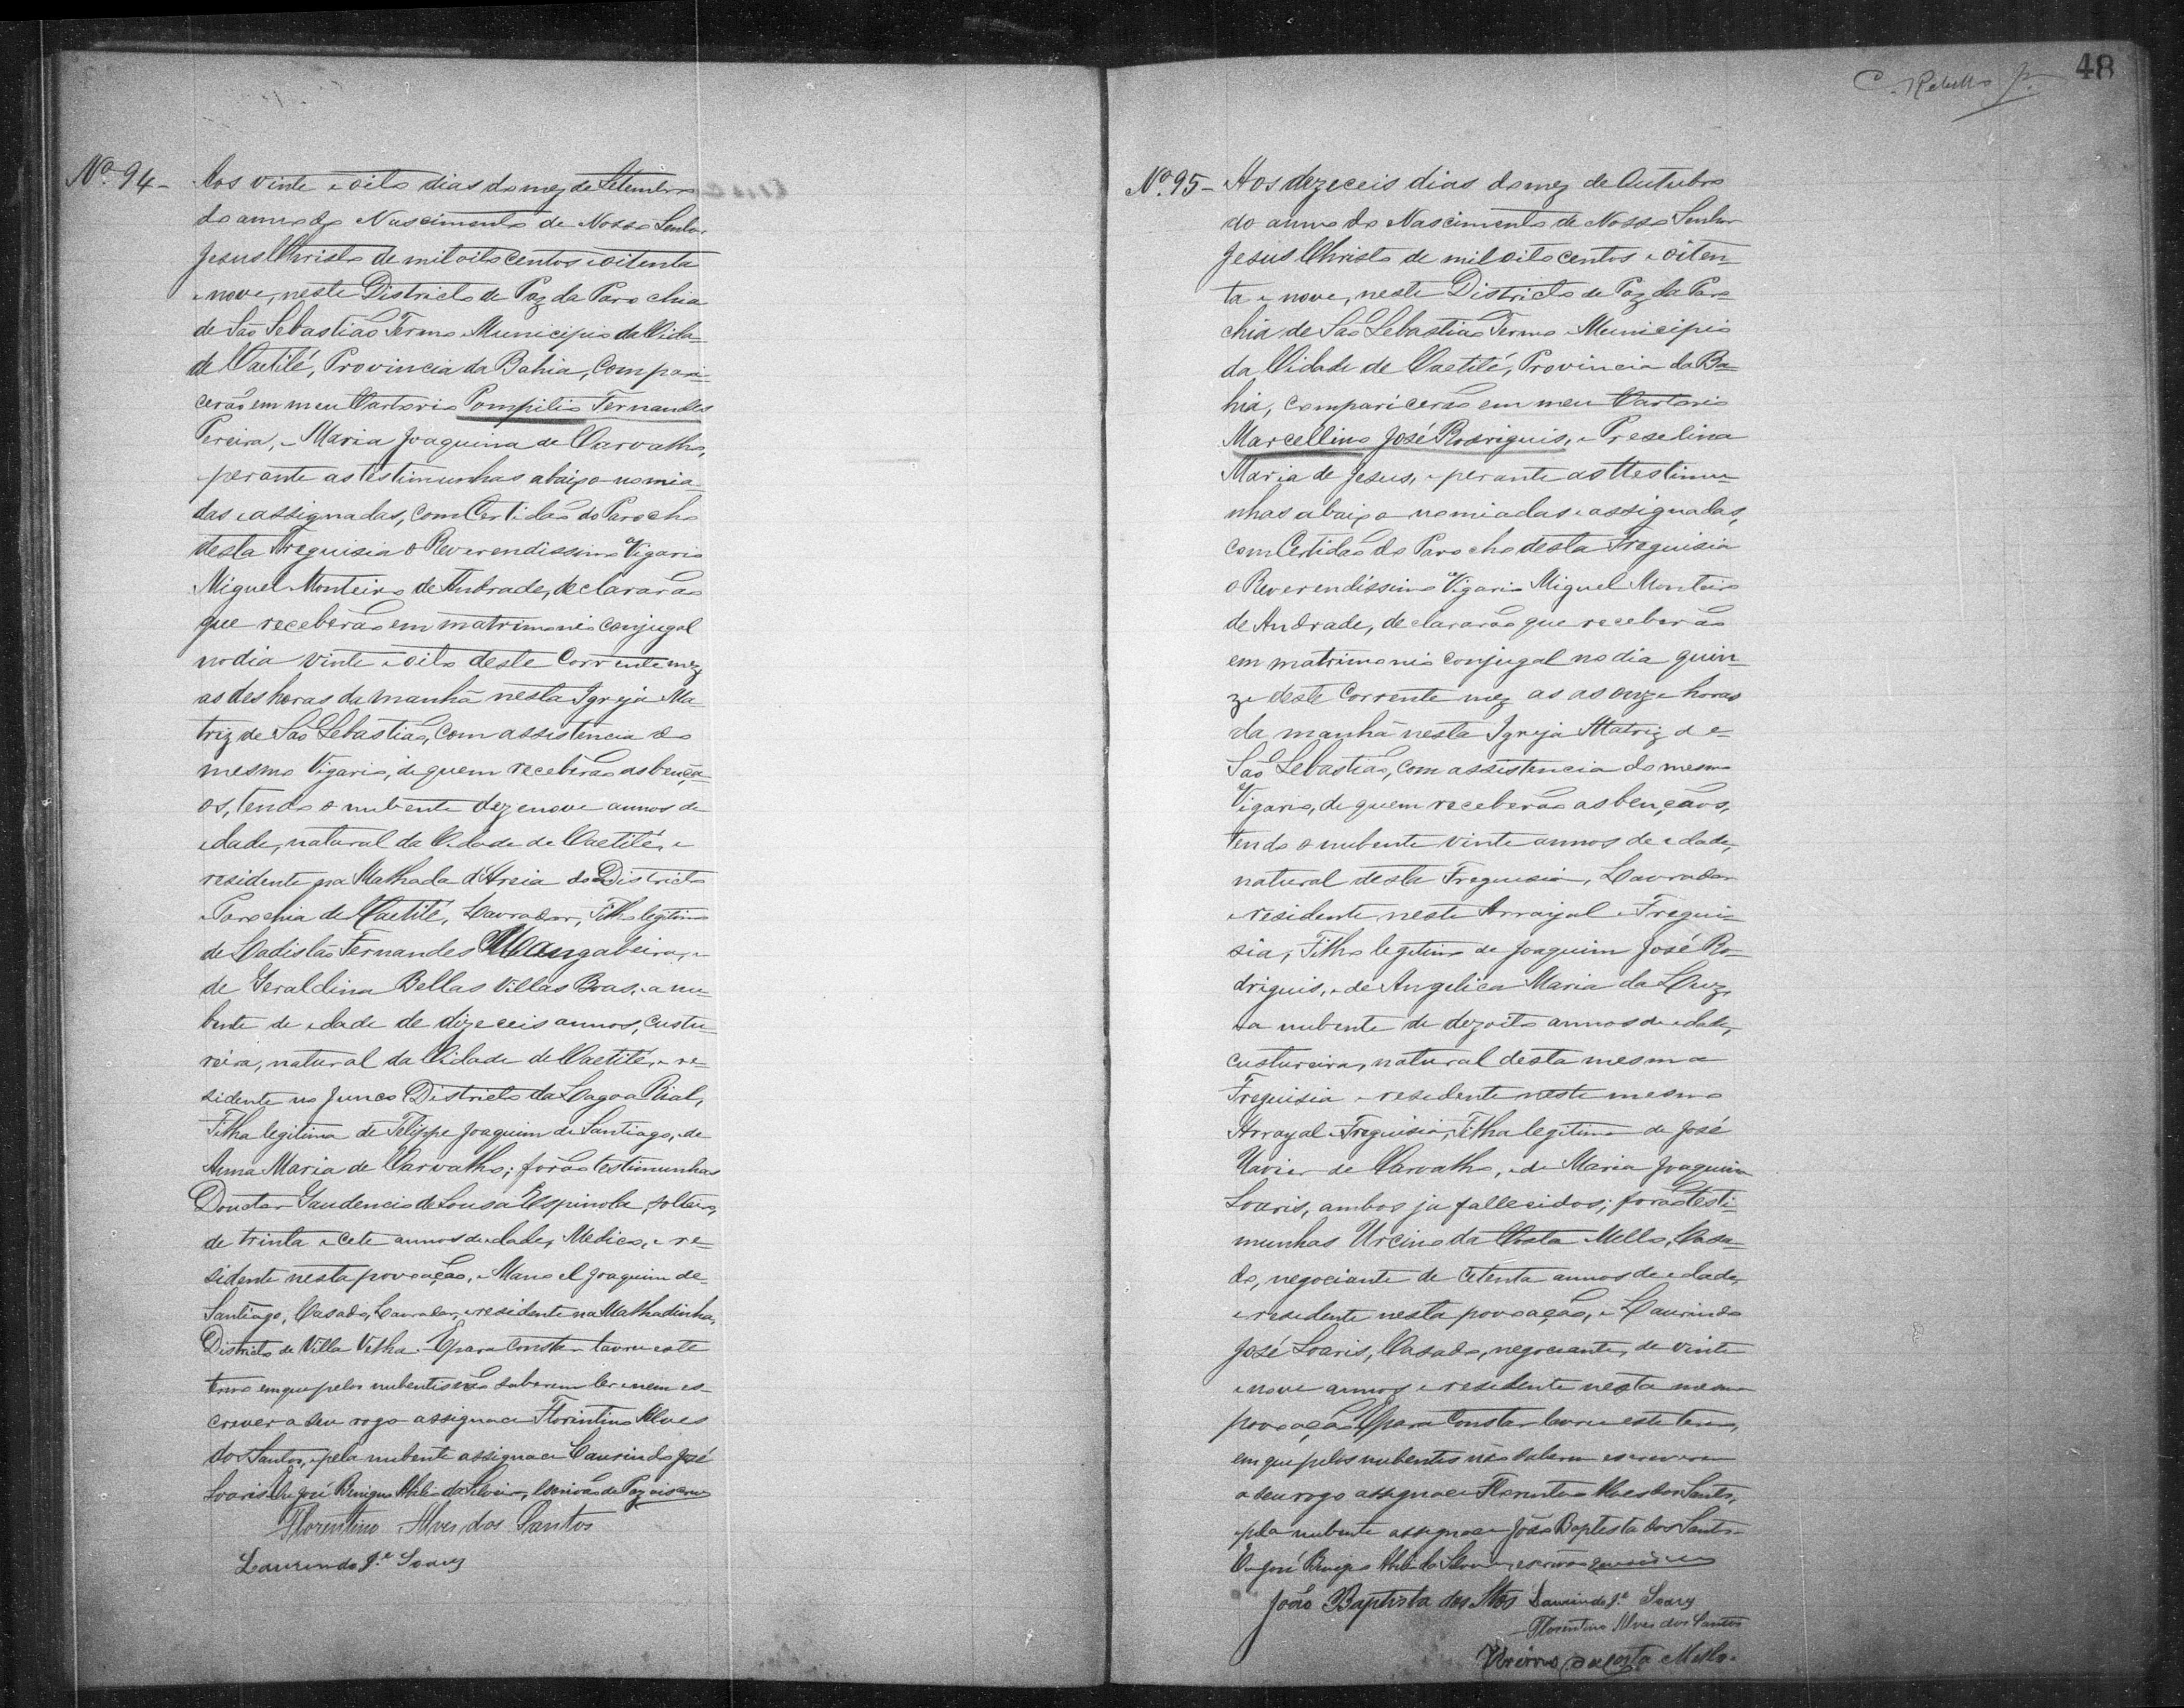 Nº 94 - Aos vinte e oito dias do mez de Setembro
do anno do Nascimento de Nosso Senhor
Jesus Christo de mil oito centos e oitenta
e nove, neste Districto de Paz da Parochia
de São Sebastião Termo e Municipio da Cida-
de Caetité, Provincia da Bahia, compari-
cerão em meu Cartorio Pompilio Fernandes
Pereira, e Maria Joaquina de Carvalho,
e perante as testimunhas abaixo nomia-
das e assignadas, com Certidão do Parocho
desta Freguisia o Reverendissimo Vigario
Miguel Monteiro de Andrade, declararão
que receberão em matrimonio conjugal
no dia vinte e oito deste Corrente mez
as des horas da manhã nesta Igreja Ma-
triz de São Sebastião, com assistencia do
mesmo Vigario, de quem receberão as benção-
os, tendo o nubente dezenove annos de
edade, natural da Cidade de Caetité, e
residente na Malhada d'Areia do Districto
e Parochia de Caetité, Lavrador, Filho legitimo
de Ladisláo Fernandes Mangabeira, e
de Geraldina Bellas Villas Boas, e a nu-
bente de edade de dizeceis annos, custu-
reira, natural da Cidade de Caetité, e re-
sidente no Junco Districto da Lagoa Rial,
Filha legitima de Filippe Joaquim de Santiago, e de
Anna Maria de Carvalho; forão testimunhas
Doutor Gaudencio de Sousa Espinola, solteiro,
de trinta e cete annos de edade, Medico, e re-
sidente nesta povoação, e Manoel Joaquim de
Santiago, Casado, Lavrador, e residente na Malhadinha,
Districto de Villa Velha. E para constar lavrei este
termo em que pelos nubentis não saberem ler e nem es-
crever a seu rogo assignace Florentino Alves
dos Santos, e pela nubente assignace Laurindo José
Soaris Eu José Benigno da Silveira, Escrivão de Paz o iscrevi
Florentino Alves dos Santos
Laurindo J.e Soares
C. Rebello Jr.
48
Nº 95 - Aos dezeceis dias do mez de Outubro
do anno do Nascimento de Nosso Senhor
Jesus Christo de mil oito centos e oiten-
ta e nove, neste Districto de Paz da Paro-
chia de São Sebastião Termo e Municipio
da Cidade de Caetité, Provincia da Ba-
hia, comparicerão em meu Cartorio
Marcellino José Rodriguis, e Preselina
Maria de Jesus, e perante as ttestimu-
nhas abaixo nomiadas e assignadas,
com Certidão do Parocho desta Freguisia
o Reverendissimo Vigario Miguel Monteiro
de Andrade, declararão que receberão
em matrimonio conjugal no dia quin-
ze deste Corrente mez as as onze horas
da manhã nesta Igreja Matriz de
São Sebastião, com assistencia do mesmo
Vigario, de quem receberão as bençãos,
tendo o nubente vinte annos de edade,
natural desta Freguisia, Lavrador
e residente neste Arrayal e Fregui-
sia, Filho legitimo de Joaquim José Ro-
driguis, e de Angelica Maria da Luz,
e a nubente de dezoito annos de edade,
custureira, natural desta mesma
Freguisia e residente neste mesmo
Arrayal e Freguisia, Filha legitima de José
Xavier de Carvalho, e de Maria Joaquina
Soaris, ambos ja fallecidos; forão testi-
munhas Urcino da Costa Mello, Casa-
do, negociante de cetenta annos de edade,
e residente nesta povoação, e Laurindo
José Soaris, Casado, negociante, de vinte
e nove annos e residente nesta mesma
povoação E para constar lavrei este termo,
em que pelos nubentes não saberem escreverem
a seu rogo assignace Florentino Alves dos Santos,
e pela nubente assignace João Baptista dos Santos
Eu José Benigno da Silveira, escrivão
João Baptista dos Stos Laurindo J.e Soares
Florentino Alves dos Santos
Urcino da Costa Mello.